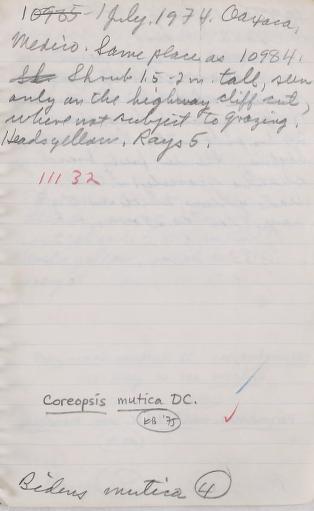 10985 - 1 July, 1974. Oaxaca,
Mexico. Same place as 10984.
Sh Shrub 1.5-2 m. tall, seen
only on the highway cliff cut,
where not subject to grazing.
Heads yellow, Rays 5.
11132
Coreopsis mutica DC.
KB '75
Bidens mutica 4